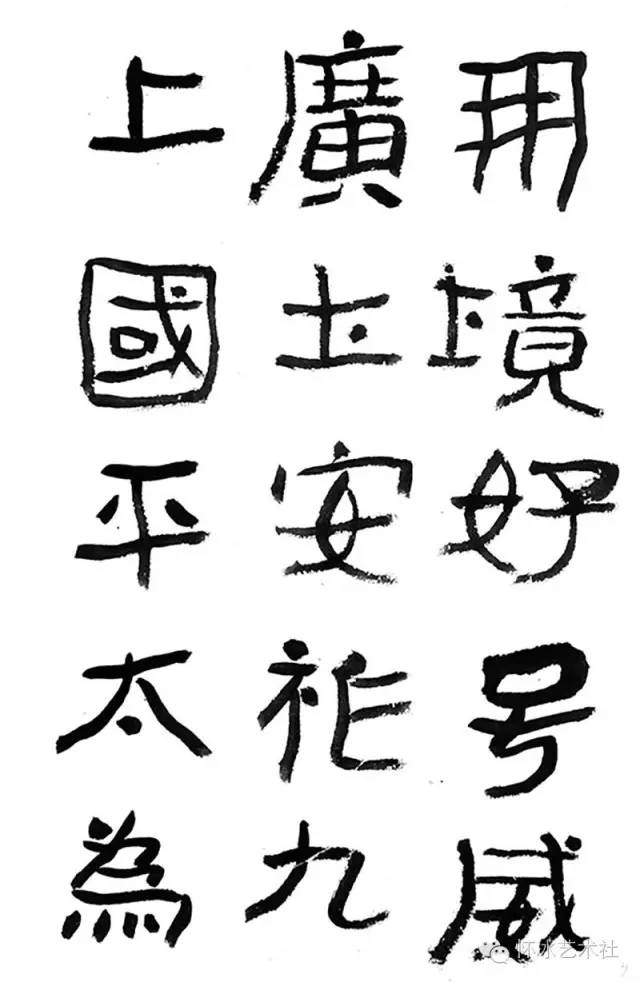 上廣開
國土境
平安好
太祚号
為九威
怀水艺术社